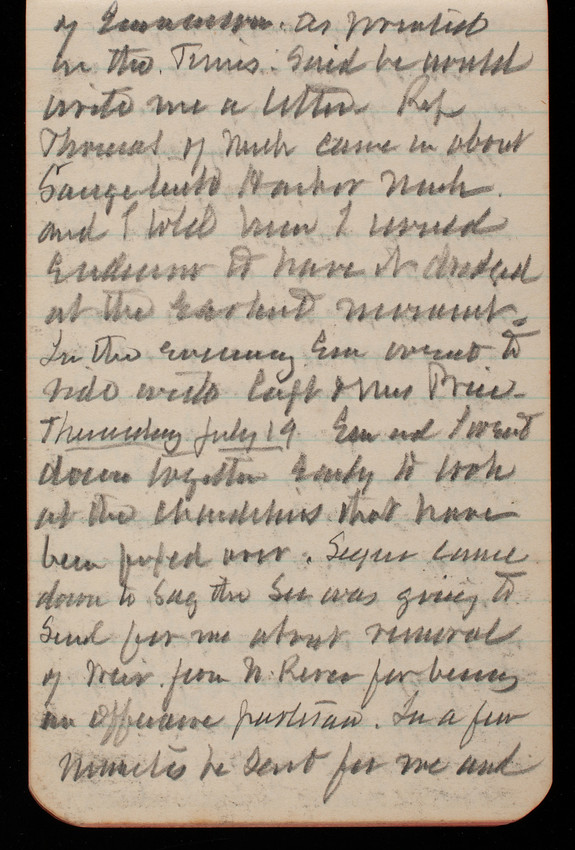 of as printed
in the Times. Said he would
write me a letter. Rep
Thomas of Mich came in about
Harbor Mich.
and I told him I would
Endeavor to have it dredged
at the Earliest moment.
In the evening Em went to
ride with Capt & Mrs Price.
Thursday July 19 Em and I went
down together Early to look
at the that have
been fixed over. came
down to Say the Sec was going to
Send for me about removal
of Weir from N. River for being
an offensive partisan. In a few
Minutes he Sent for me and